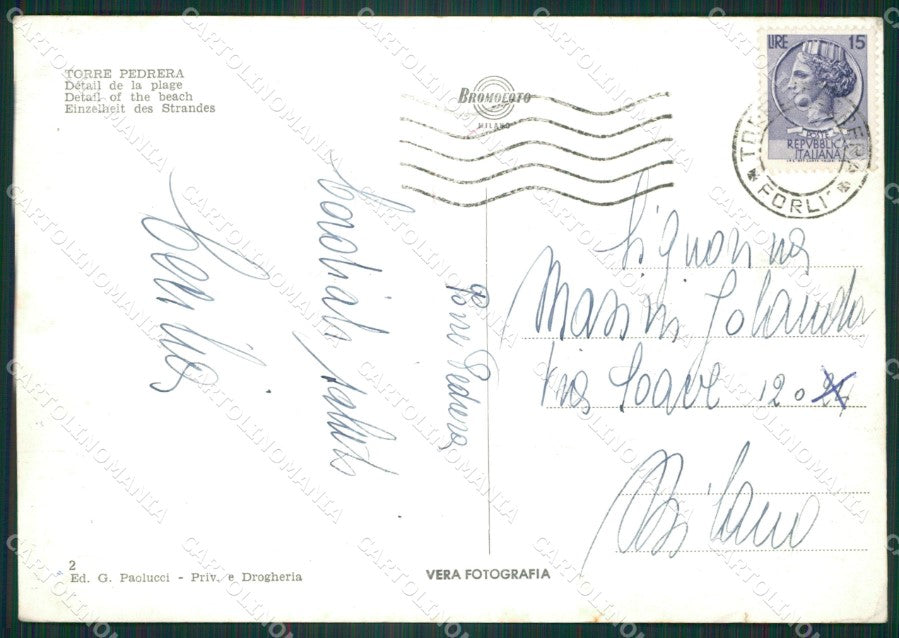 TORRE PEDRERA
Détail de la plage
Detail of the beach
Einzelheit des Strandes
BROMOFOTO
MILANO
LIRE 15
POSTE
REPVBBLICA
ITALIANA
FORLI'
Cordiali saluti
Torre Pedrera
Signorina
Masini Jolanda
Via Soave 12
Milano
2
Ed. G. Paolucci - Priv. e Drogheria
VERA FOTOGRAFIA
CARTOLINOMANIA